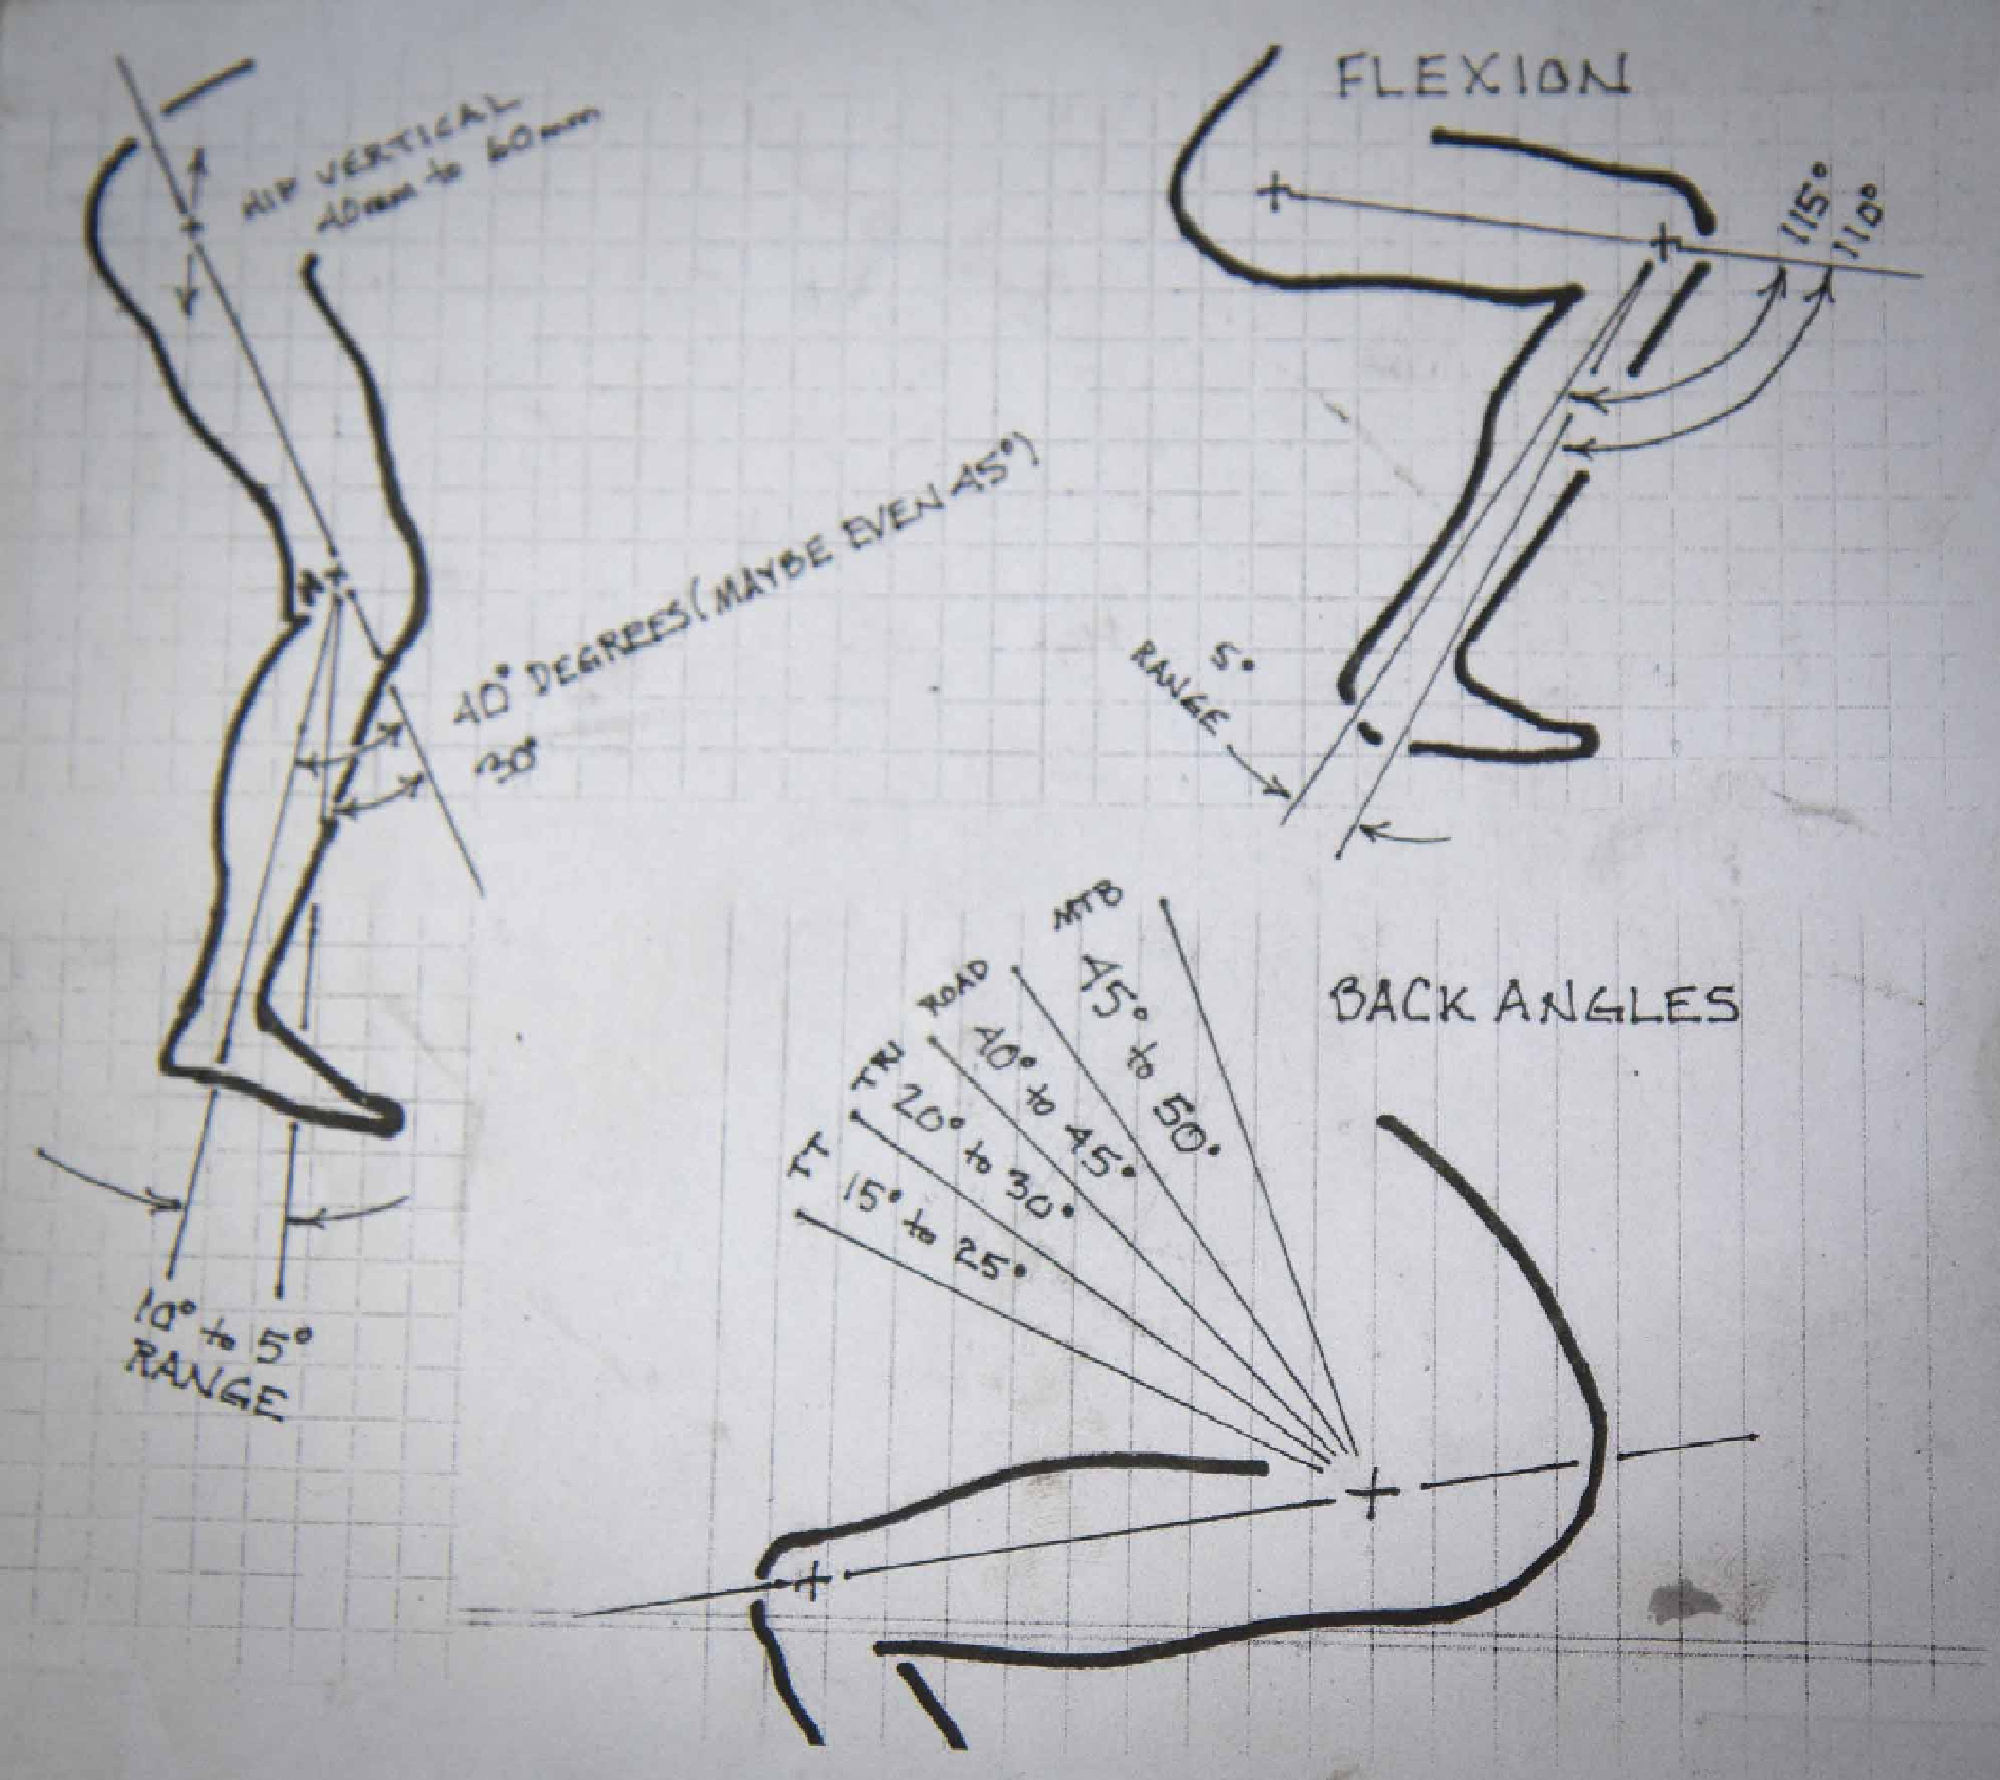 HIP VERTICAL
40mm to 60mm
40° DEGREES (MAYBE EVEN 45°)
30°
10° to 5°
RANGE
FLEXION
115°
110°
5°
RANGE
BACK ANGLES
MTB
45° to 50°
ROAD
40° to 45°
TRI
20° to 30°
TT
15° to 25°